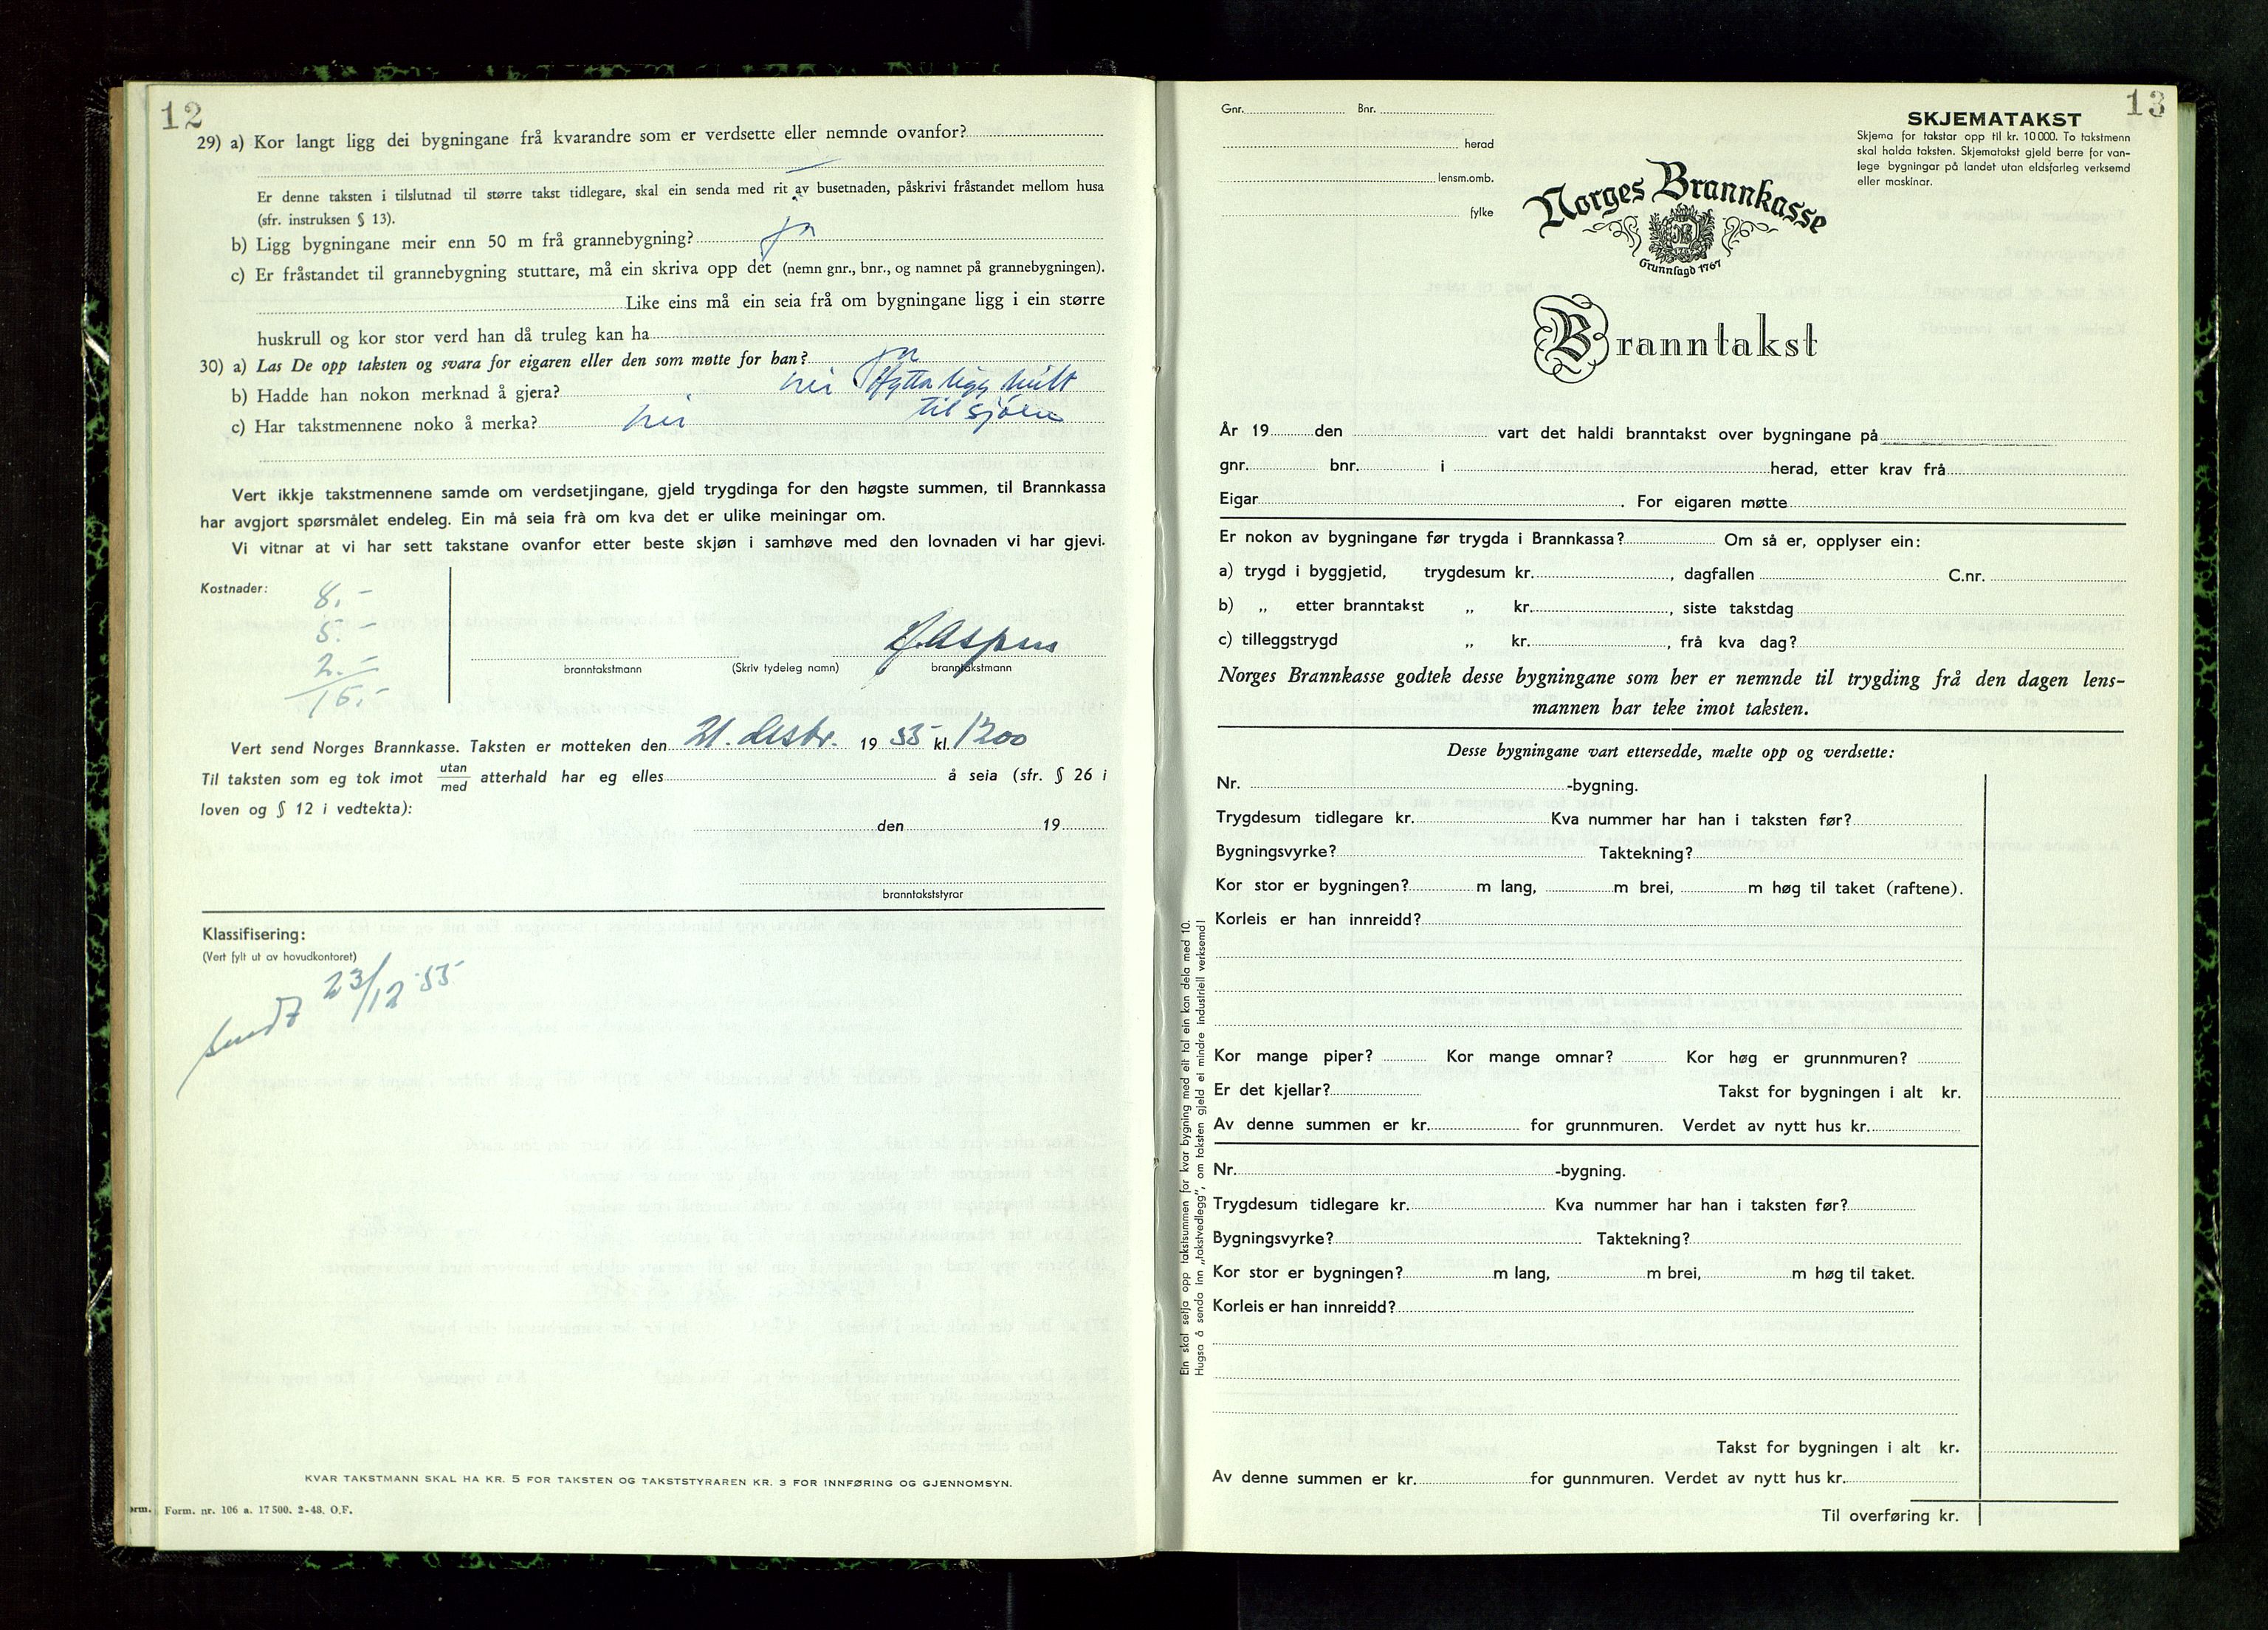 12
29) a) Kor langt ligg dei bygningane frå kvarandre som er verdsette eller nemnde ovanfor?
Er denne taksten i tilslutnad til større takst tidlegare, skal ein senda med rit av busetnaden, påskrivi fråstandet mellom husa
(sfr. instruksen § 13).
b) Ligg bygningane meir enn 50 m frå grannebygning? ja
c) Er fråstandet til grannebygning stuttare, må ein skriva opp det (nemn gnr., bnr., og namnet på grannebygningen).
Like eins må ein seia frå om bygningane ligg i ein større
huskrull og kor stor verd han då truleg kan ha
30) a) Las De opp taksten og svara for eigaren eller den som møtte for han? ja
b) Hadde han nokon merknad å gjera? nei Hytta ligg heilt
til sjøen
c) Har takstmennene noko å merka? nei
Vert ikkje takstmennene samde om verdsetjingane, gjeld trygdinga for den høgste summen, til Brannkassa
har avgjort spørsmålet endeleg. Ein må seia frå om kva det er ulike meiningar om.
Vi vitnar at vi har sett takstane ovanfor etter beste skjøn i samhøve med den lovnaden vi har gjevi.
Kostnader:
8.-
5.-
2.-
15.-
branntakstmann (Skriv tydeleg namn) branntakstmann
Vert send Norges Brannkasse. Taksten er motteken den 21. desbr. 19 55 kl. 1200
Til taksten som eg tok imot utan/med atterhald har eg elles å seia (sfr. § 26 i
loven og § 12 i vedtekta):
den 19
branntakststyrar
Klassifisering:
(Vert fylt ut av hovudkontoret)
sendt 23/12-55
KVAR TAKSTMANN SKAL HA KR. 5 FOR TAKSTEN OG TAKSTSTYRAREN KR. 3 FOR INNFØRING OG GJENNOMSYN.
orm. Form. nr. 106 a. 17 500. 2-48. O.F.
13
Gnr. Bnr.
herad
lensm.omb.
fylke
SKJEMATAKST
Skjema for takstar opp til kr. 10 000. To takstmenn
skal halda taksten. Skjematakst gjeld berre for van-
lege bygningar på landet utan eldsfarleg verksemd
eller maskinar.
Norges Brannkasse
Grunnlagd 1767
Branntakst
År 19 den vart det haldi branntakst over bygningane på
gnr. bnr. i herad, etter krav frå
Eigar . For eigaren møtte
Er nokon av bygningane før trygda i Brannkassa? Om så er, opplyser ein:
a) trygd i byggjetid, trygdesum kr. , dagfallen C.nr.
b) „ etter branntakst „ kr. , siste takstdag
c) tilleggstrygd „ kr. , frå kva dag?
Norges Brannkasse godtek desse bygningane som her er nemnde til trygding frå den dagen lens-
mannen har teke imot taksten.
Desse bygningane vart ettersedde, mælte opp og verdsette:
Nr. -bygning.
Trygdesum tidlegare kr. Kva nummer har han i taksten før?
Bygningsvyrke? Taktekning?
Kor stor er bygningen? m lang, m brei, m høg til taket (raftene).
Korleis er han innreidd?
Kor mange piper? Kor mange omnar? Kor høg er grunnmuren?
Er det kjellar? Takst for bygningen i alt kr.
Av denne summen er kr. for grunnmuren. Verdet av nytt hus kr.
Nr. -bygning.
Trygdesum tidlegare kr. Kva nummer har han i taksten før?
Bygningsvyrke? Taktekning?
Kor stor er bygningen? m lang, m brei, m høg til taket.
Korleis er han innreidd?
Takst for bygningen i alt kr.
Av denne summen er kr. for gunnmuren. Verdet av nytt hus kr.
Til overføring kr.
Ein skal setja opp takstsummen for kvar bygning med eit tal ein kan dela med 10.
Hugsa å senda inn „takstvedlegg", om taksten gjeld ei mindre industriell verksemd!